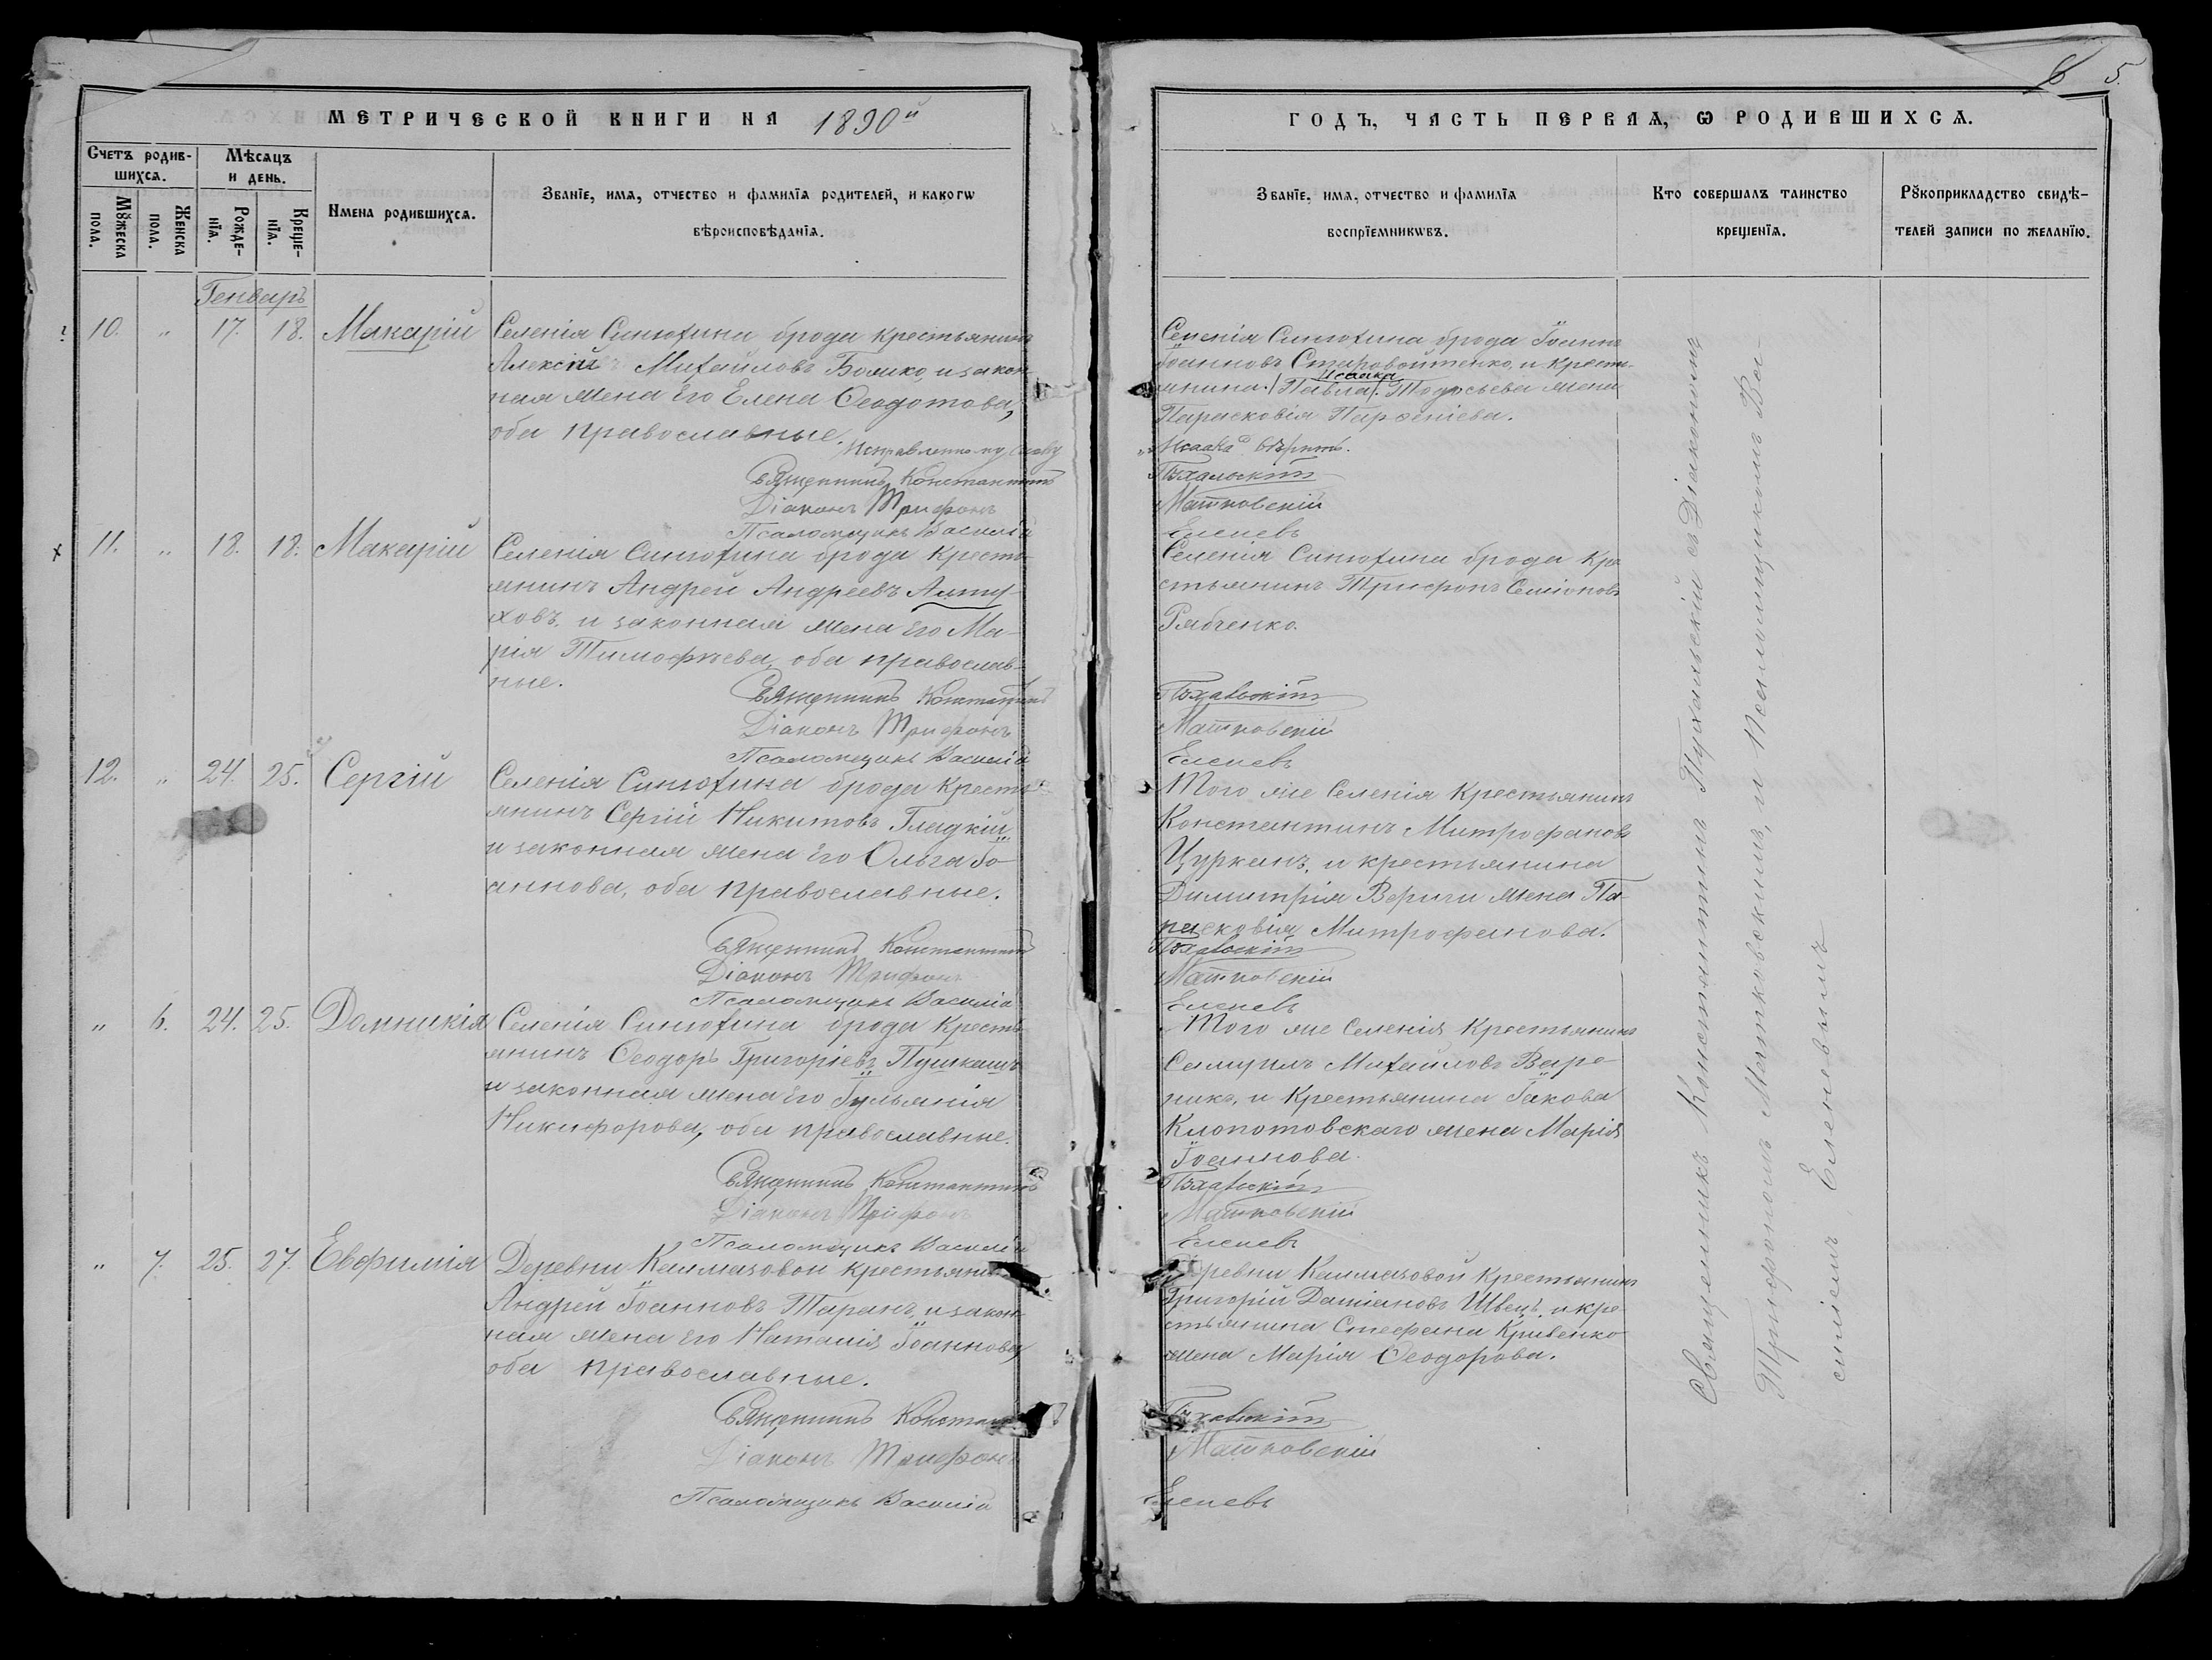 МЕТРИЧЕСКОЙ КНИГИ НА 1890й
Счетъ родив-
шихсѧ.
Мѣсѧцъ
и день.
Мꙋжеска
пола.
Женска
пола.
Рожде-
нїѧ.
Креще-
нїѧ.
Имена родившихсѧ.
Званїе, имѧ, отчество и фамилїѧ родителей, и какогѡ
вѣроисповѣданїѧ.
Генваръ
10. " 17. 18. Макарій
Селенія Синюхина брода крестьянинъ
Алексій Михайловъ Бойко, и закон-
ная жена его Елена Ѳеодотова,
оба православные.
Исправленно му слову
Священникъ Константинъ
Діаконъ Трифонъ
Псаломщикъ Василій
11. " 18. 18. Макарій
Селенія Синюхина брода кресть-
янинъ Андрей Андреевъ Алту-
ховъ, и законная жена его Ма-
рія Тимофѣева, оба православ-
ные.
Священникъ Константинъ
Діаконъ Трифонъ
Псаломщикъ Василій
12. " 24. 25. Сергій
Селенія Синюхина брода кресть-
янинъ Сергій Никитовъ Гладкій
и законная жена его Ольга Іо-
аннова, оба православные.
Священникъ Константинъ
Діаконъ Трифонъ
Псаломщикъ Василій
" 6. 24. 25. Домникія
Селенія Синюхина брода кресть-
янинъ Ѳеодоръ Григоріевъ Пушкашъ
и законная жена его Іульянія
Никифорова, оба православные.
Священникъ Константинъ
Діаконъ Трифонъ
Псаломщикъ Василій
" 7. 25. 27. Евфимія
Деревни Каимазовой крестьянинъ
Андрей Іоанновъ Таранъ, и закон-
ная жена его Наталія Іоаннова,
оба православные.
Священникъ Константинъ
Діаконъ Трифонъ
Псаломщикъ Василій
6 5.
ГОДЪ, ЧАСТЬ ПЕРВАѦ, Ѡ РОДИВШИХСѦ.
Званїе, имѧ, отчество и фамилїѧ
воспрїемникѡвъ.
Кто совершалъ таинство
крещенїѧ.
Рꙋкоприкладство свидѣ-
телей записи по желанїю.
Селенія Синюхина брода Іоаннъ
Іоанновъ Старовойтенко, и кресть-
Исаака
янина /Павла/ Тодосьева жена
Парасковія Парѳеніева.
"Исаака" вѣрить.
Пухальскій
Матковскій
Еленевъ
Селенія Синюхина брода кре-
стьянинъ Трифонъ Семіоновъ
Рябченко.
Пухальскій
Матковскій
Еленевъ
Того же селенія крестьянинъ
Константинъ Митрофановъ
Цурканъ, и крестьянина
Димитрія Вериги жена Па-
расковія Митрофанова.
Пухальскій
Матковскій
Еленевъ
Того же селенія крестьянинъ
Самуилъ Михайловъ Варе-
никъ, и крестьянина Іакова
Клопотовскаго жена Марія
Іоаннова.
Пухальскій
Матковскій
Еленевъ
Деревни Каимазовой крестьянинъ
Григорій Даміановъ Швецъ, и кре-
стьянина Стефана Кривенко
жена Марія Ѳеодорова.
Пухальскій
Матковскій
Еленевъ
Священникъ Константинъ Пухальскій съ Діакономъ
Трифономъ Матковскимъ, и Псаломщикомъ Ва-
силіемъ Еленевымъ